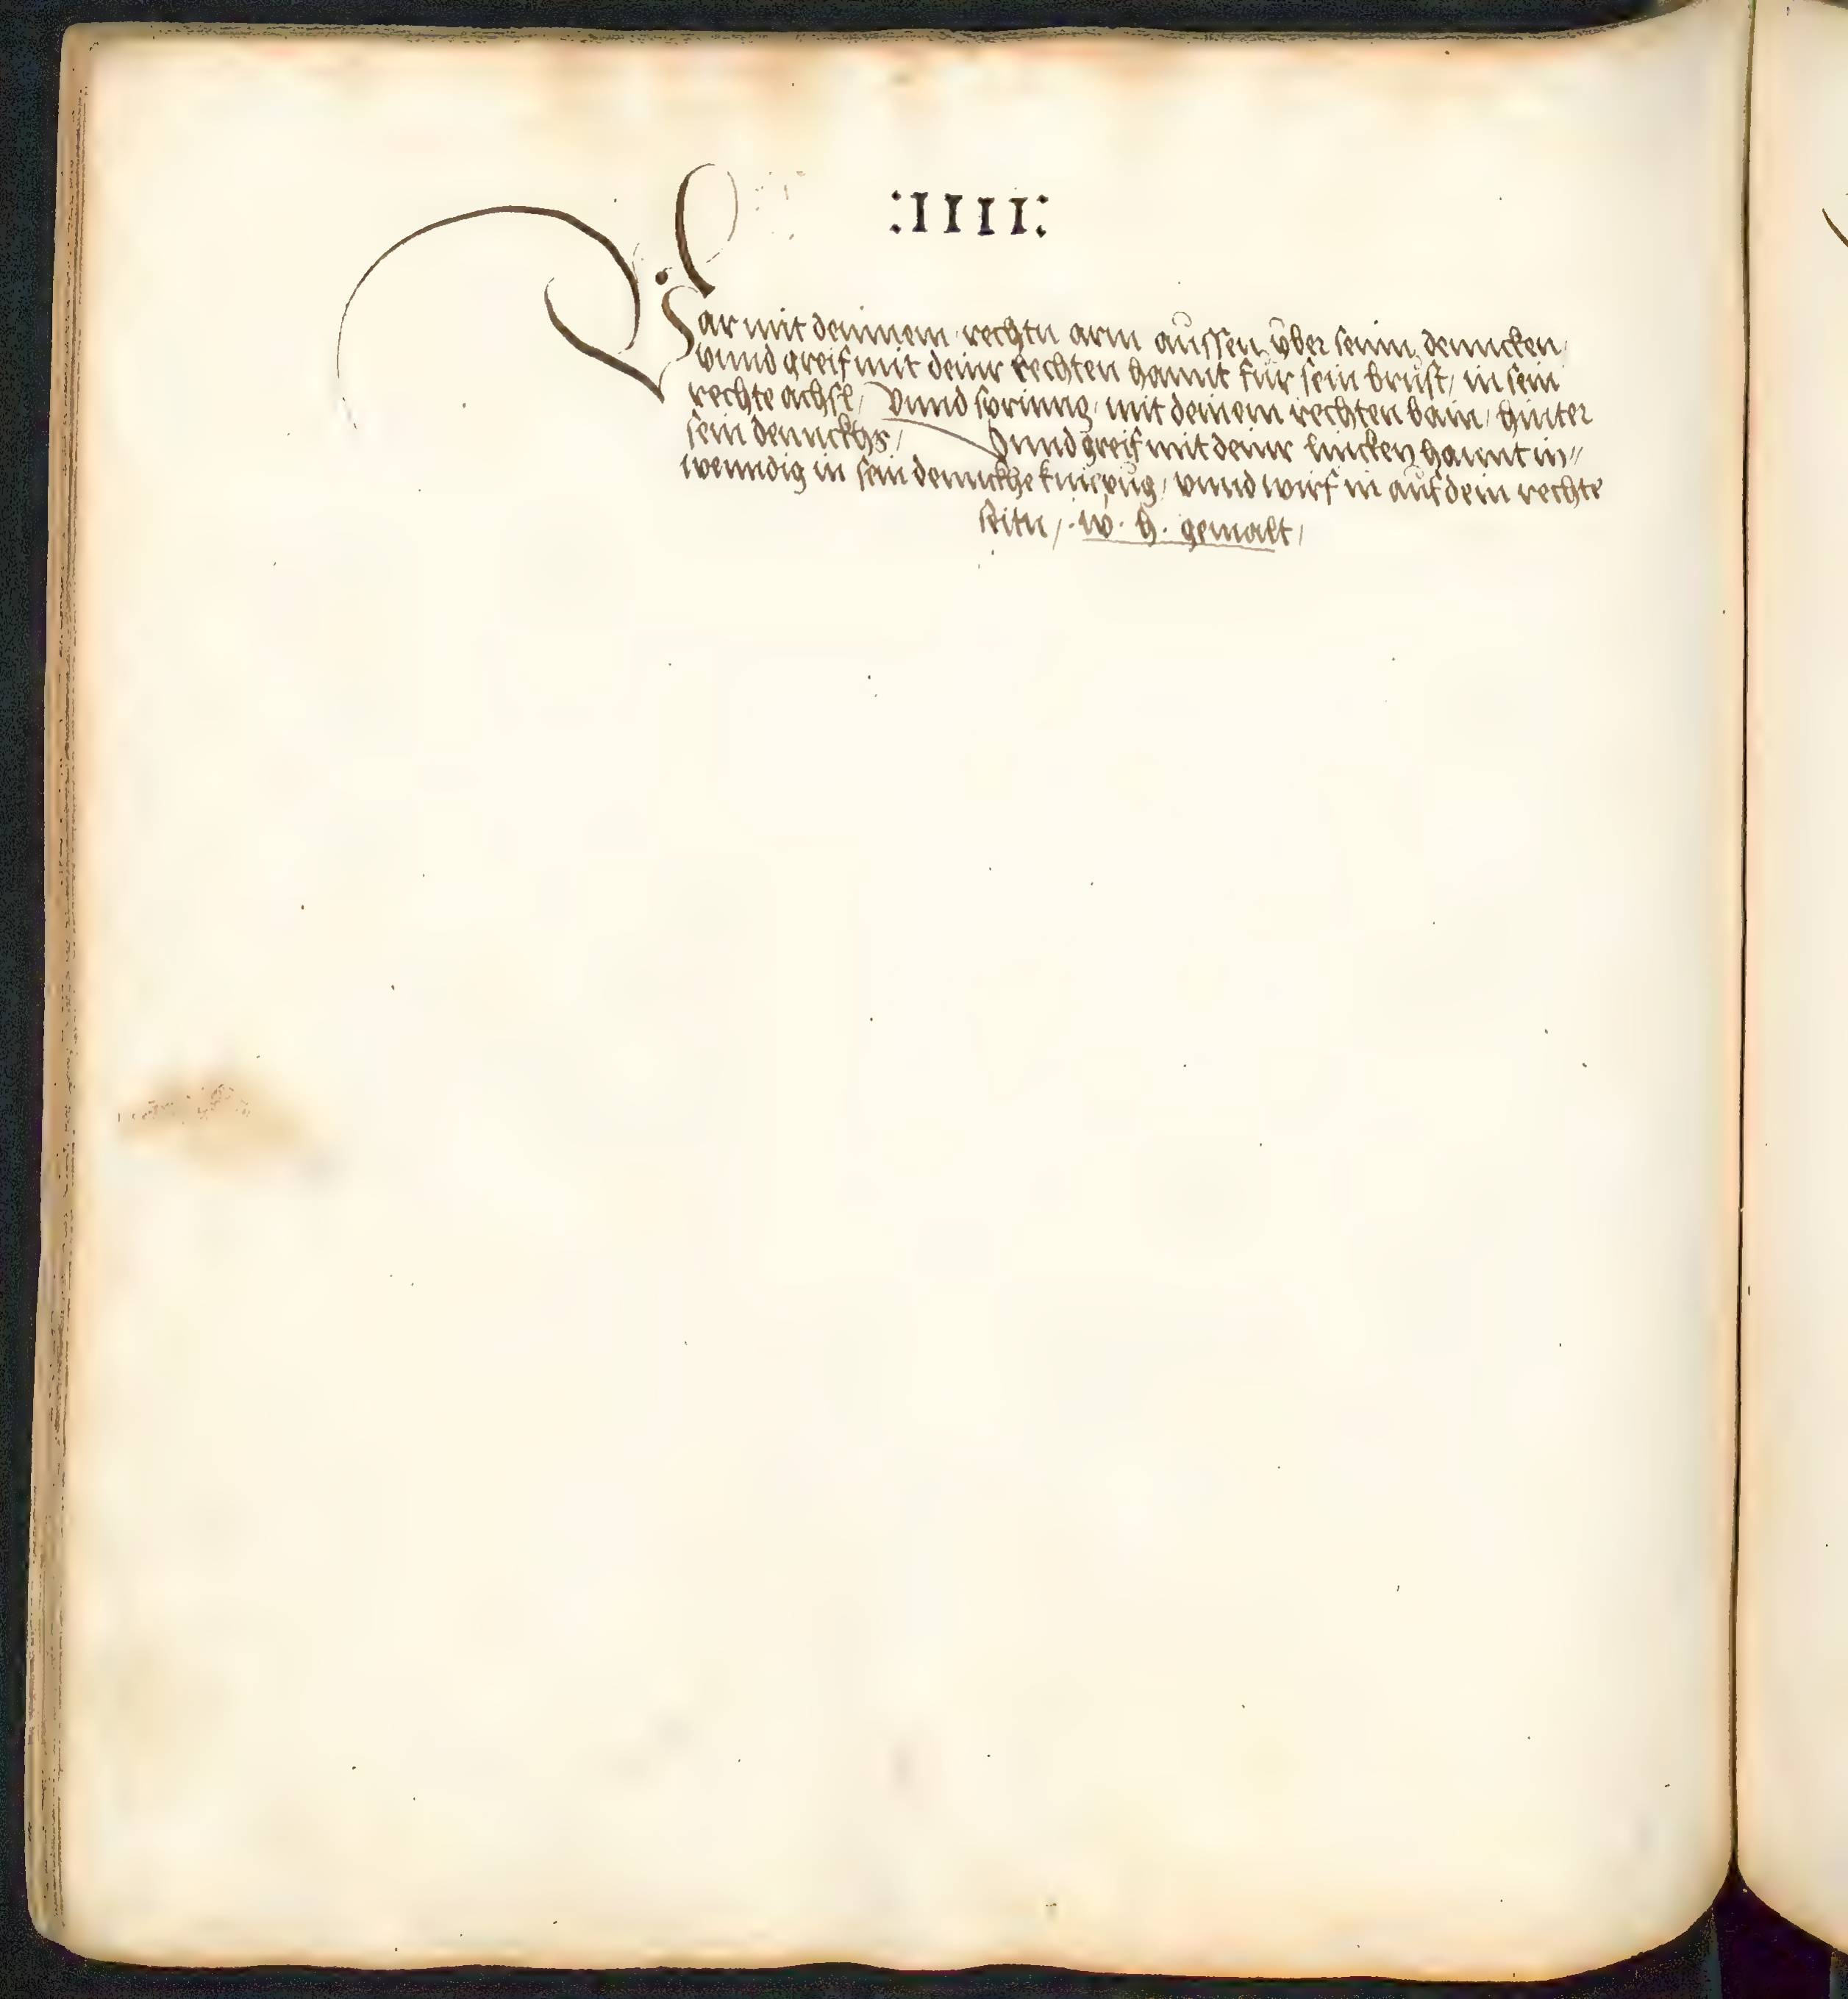 :IIII:
Far mit deinnem rechtn arm aussen vber seinn denncken,
vnnd greif mit deinr rechten hannt für sein brust, in sein
rechte achsl, Vnnd sprinng, mit deinem rechten bain, hinter
sein dennckhs, Vnnd greif mit deinr lincken hannt in//
wenndig in sein dennckhe kniepug, vnnd wirf in auf dein rechte
seitn, .w. h. gemalt,